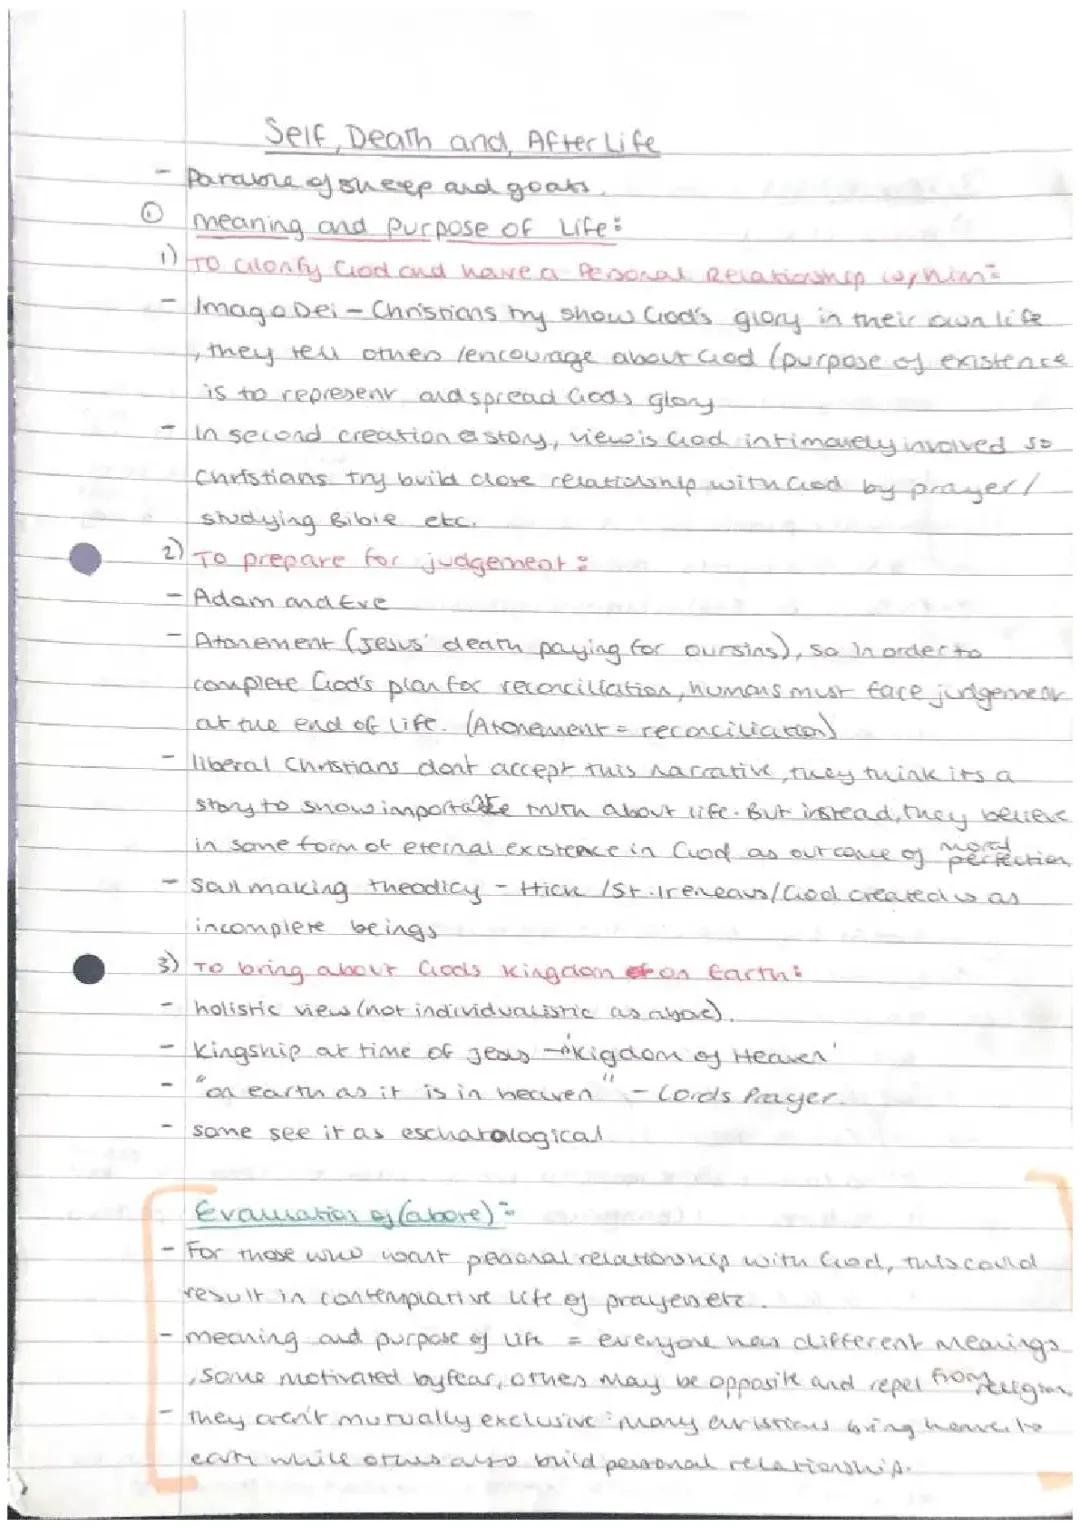 Self, Death and, AfterLife
- Parable of sheep and goats.
① meaning and Purpose of Life:
1) To Glorify God and have a Personal Relationship w/ him:
- Imago Dei - Christians try show God's glory in their own life
, they tell others /encourage about God (purpose of existence
is to represent and spread Gods glory
- In second creation story, view is God intimately involved so
Christians try build close relationship with God by prayer/
studying Bible etc.
2) To prepare for judgement:
- Adam and Eve
- Atonement (Jesus' death paying for our sins), so in order to
complete God's plan for reconciliation, humans must face judgement
at the end of life. (Atonement = reconciliation)
- liberal Christians dont accept this narrative, they think its a
story to show important truth about life. But instead, they believe
in some form of eternal existence in God as outcome of moral perfection
- Soul making theodicy - Hick /St. Ireneaus/God created us as
incomplete beings
3) To bring about Gods Kingdom on Earth:
- holistic view (not individualistic as above).
- Kingship at time of Jesus → 'kigdom of Heaven'
- "on earth as it is in heaven" - Lords Prayer.
- some see it as eschatological
Evaluation of (above):
- For those who want personal relationship with God, this could
result in contemplative life of prayer etc.
- meaning and purpose of life = everyone has different meanings
, some motivated by fear, others may be opposite and repel from religion
- they aren't mutually exclusive: many christians bring heaven to
earth while others also build personal relationship.